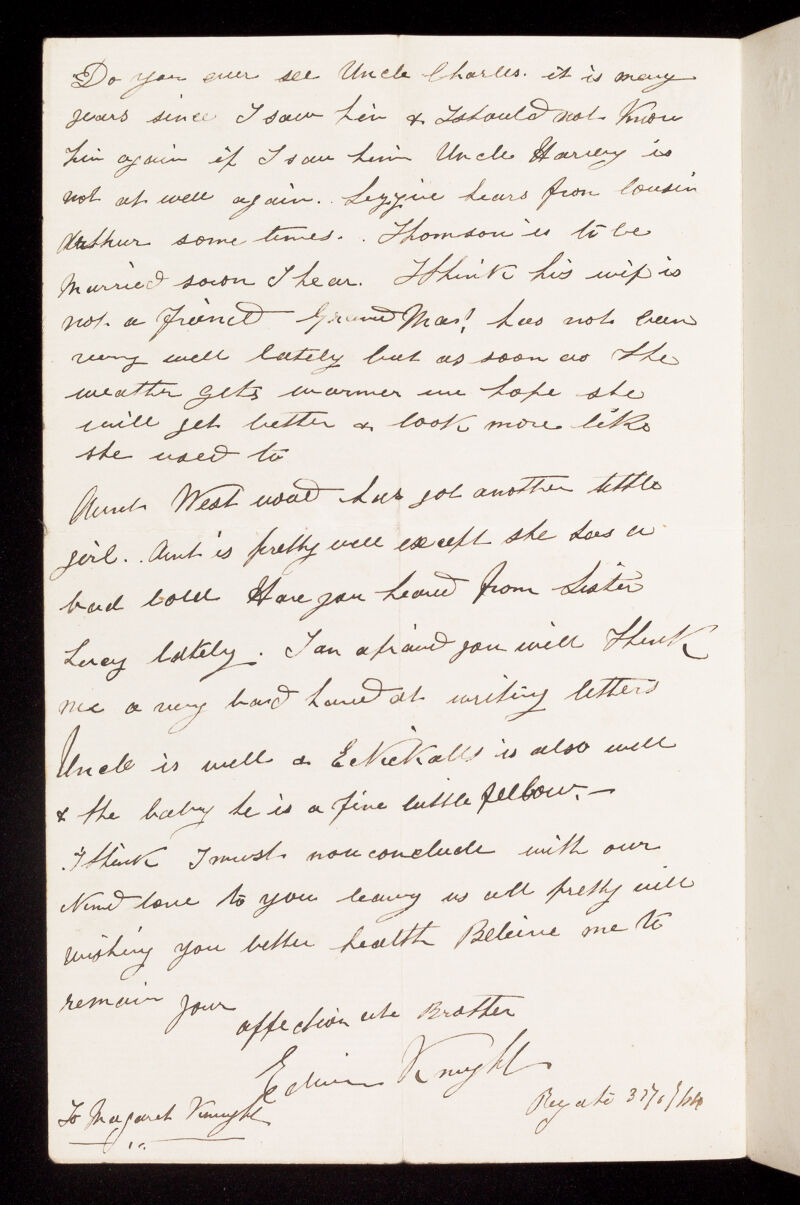 Do you ever see Uncle Charles. it is many
years since I saw him & I should not Know
him again if I saw him Uncle Harvey is
not at well again.. Lizzie hears from Cousin
Arthur some times.. Thomson is to be
Married soon I hear. I think his wife is
not a friend Grand Mas! has not been
very well lately but as soon as the
weather gets warmer we hope she
will get better & look more like
she used to
Aunt West wood has got another little
girl.. Aunt is pretty well except she has a
bad cold Have you heard from Sister
Lucy lately. I am afraid you will think
me a very bad hand at writing letters
Uncle is well & E Nickalls is also well
& the baby he is a fine little fellow.—
I think I must now conclude with our
Kind love to you leaving us all pretty well
wishing you better health Beleive me to
remain your
affection ate Brother
Edwin Knight
To Magaret Knight
Reygate